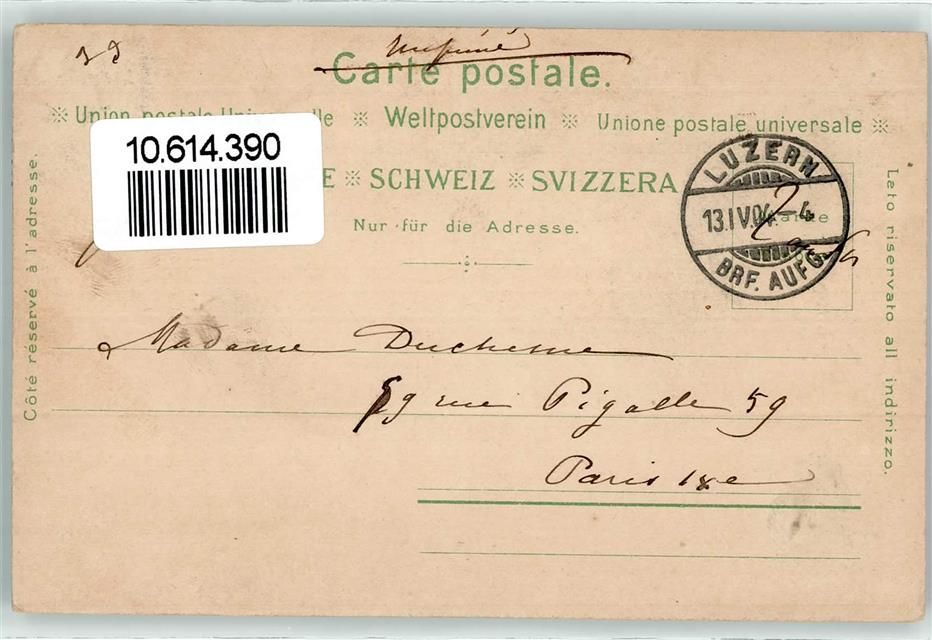 Imprimé
Carte postale.
※ Union postale Universelle ※ Weltpostverein ※ Unione postale universale ※
10.614.390
E ※ SCHWEIZ ※ SVIZZERA
Nur für die Adresse.
LUZERN
13.IV.04.-4
BRF. AUFG.
Marke
Côté réservé à l'adresse.
Lato riservato all indirizzo.
Madame Duchesne
59 rue Pigalle 59
Paris IXe